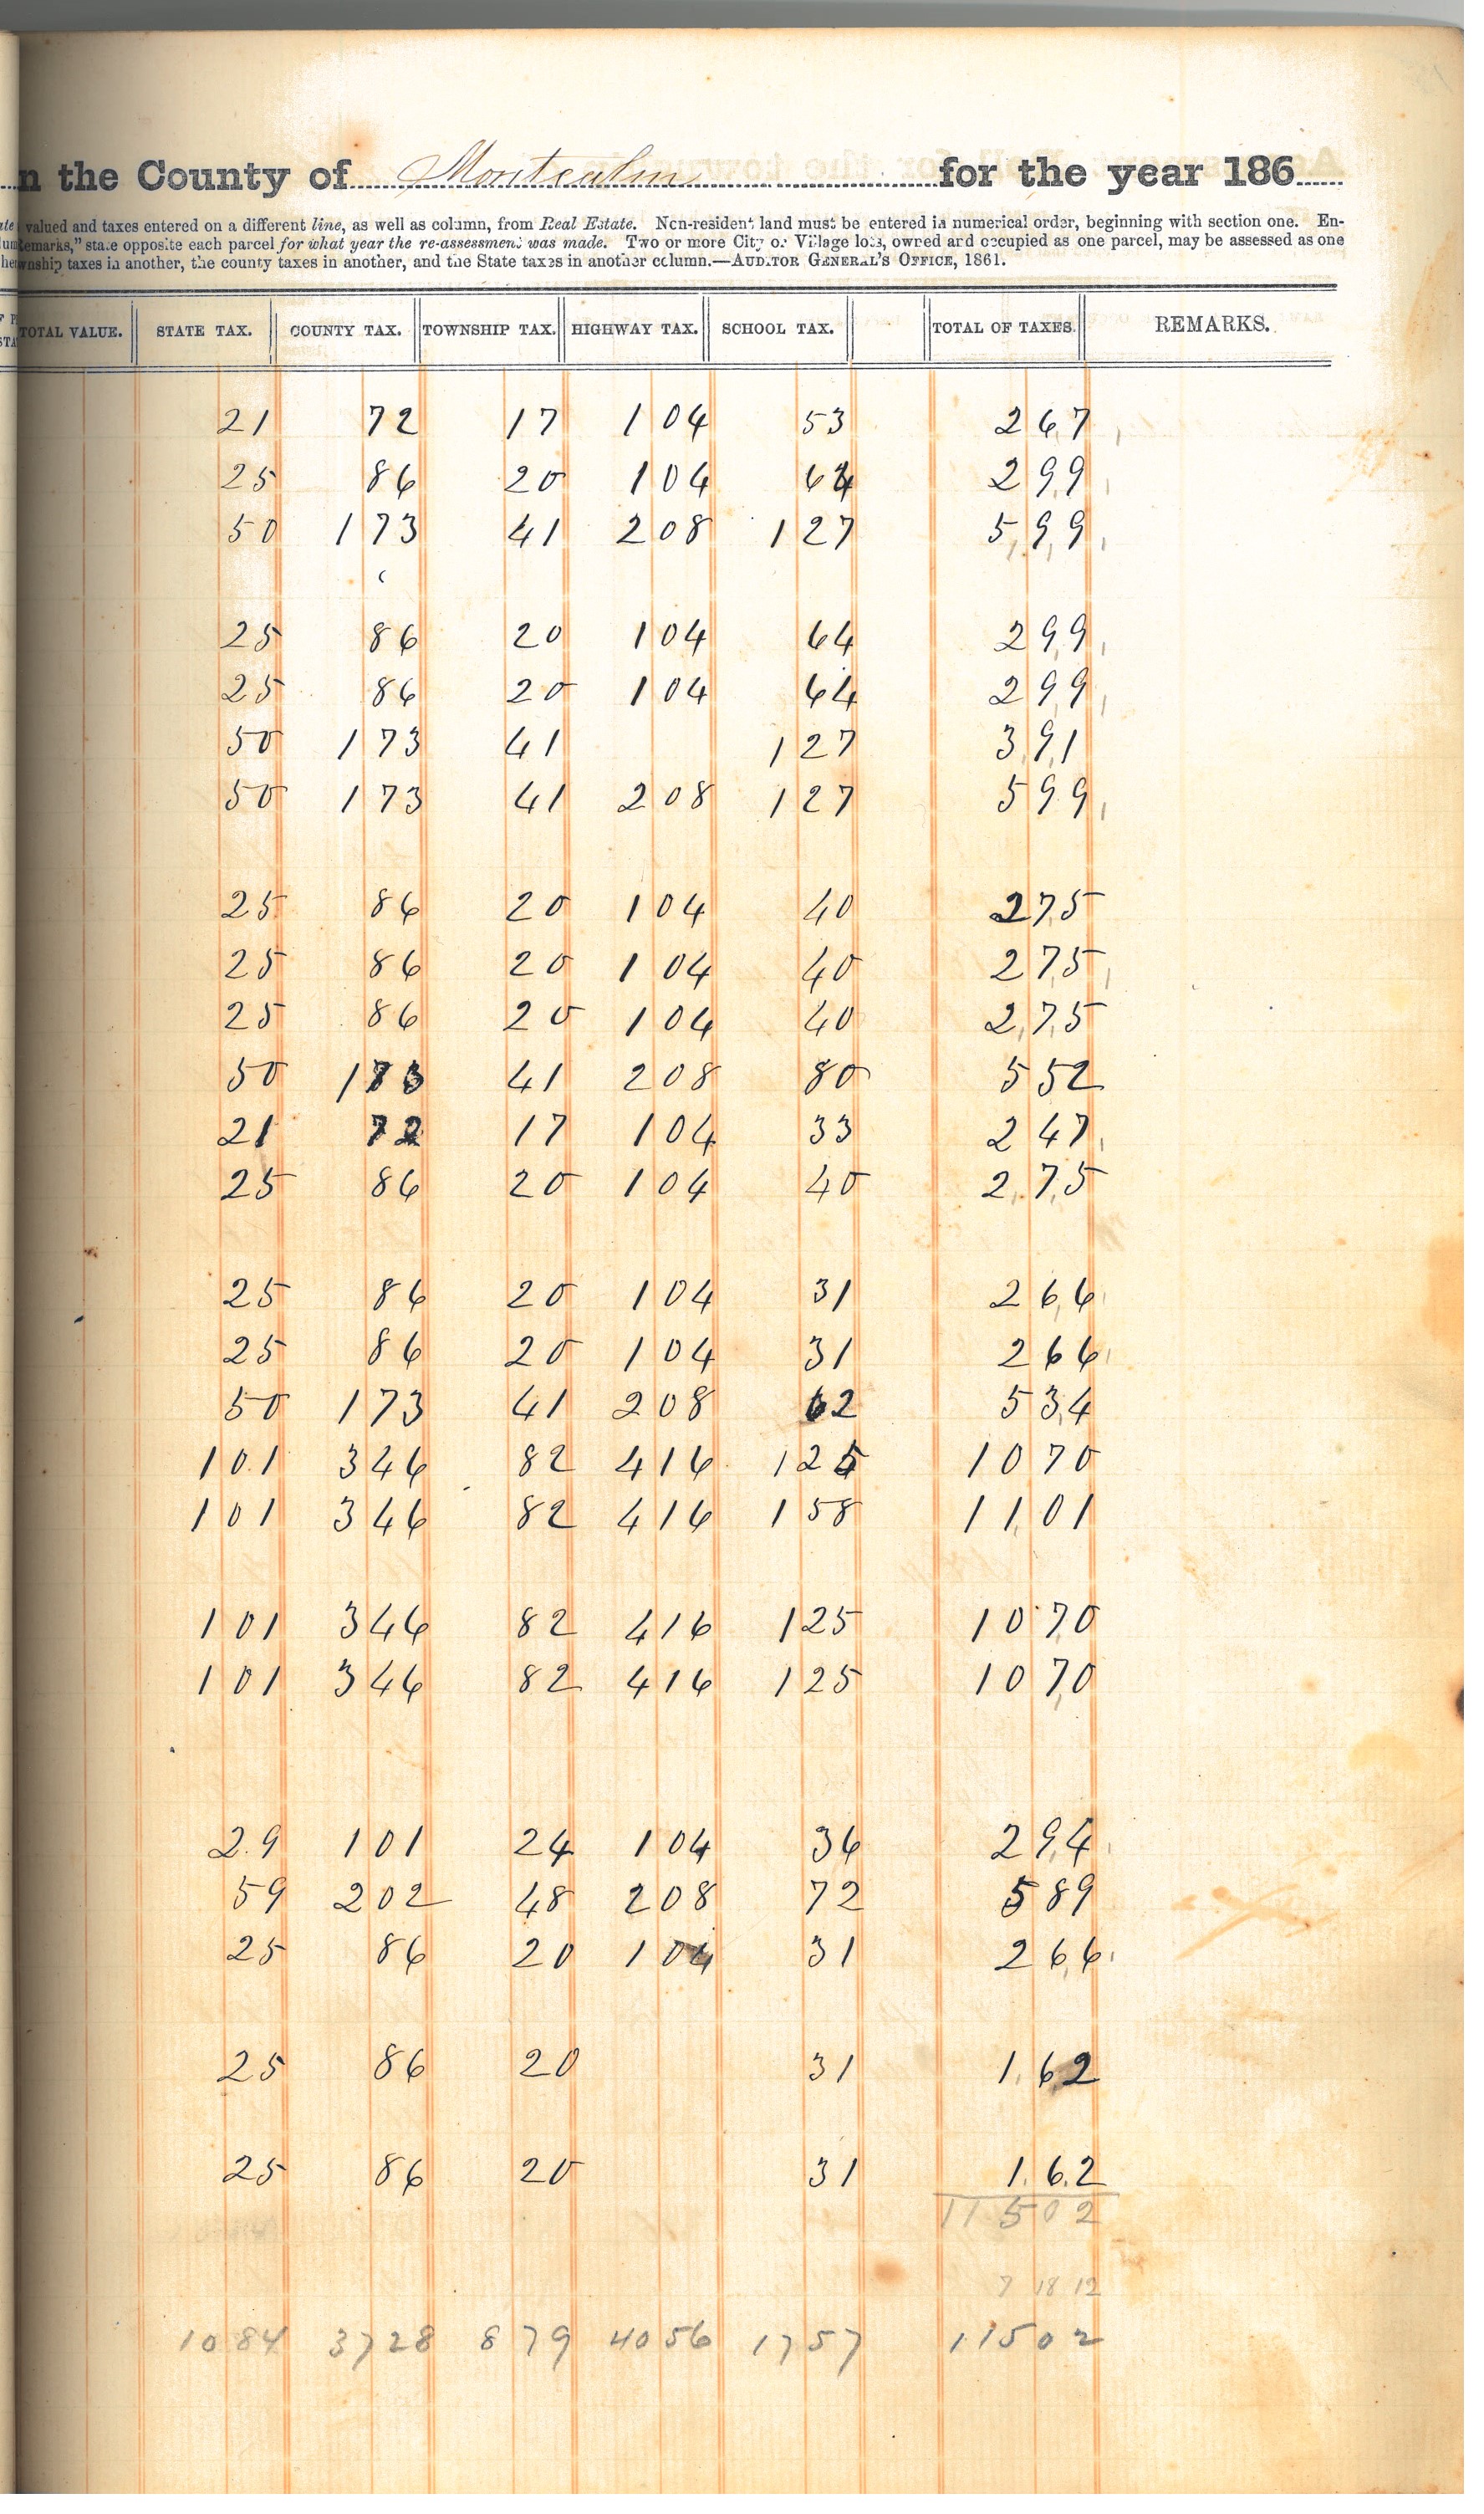 n the County of Montcalm for the year 186
ate valued and taxes entered on a different line, as well as column, from Real Estate. Non-resident land must be entered in numerical order, beginning with section one. En-
emarks," state opposite each parcel for what year the re-assessment was made. Two or more City or Village lots, owned and occupied as one parcel, may be assessed as one
wnship taxes in another, the county taxes in another, and the State taxes in another column.—AUDITOR GENERAL'S OFFICE, 1861.
TOTAL VALUE. STATE TAX. COUNTY TAX. TOWNSHIP TAX. HIGHWAY TAX. SCHOOL TAX. TOTAL OF TAXES. REMARKS.
21 72 17 1 04 53 2 67
25 86 20 1 04 64 2 99
50 1 73 41 2 08 1 27 5 99
25 86 20 1 04 64 2 99
25 86 20 1 04 64 2 99
50 1 73 41 1 27 3 91
50 1 73 41 2 08 1 27 5 99
25 86 20 1 04 40 2 75
25 86 20 1 04 40 2 75
25 86 20 1 04 40 2 75
50 1 73 41 2 08 80 5 52
21 72 17 1 04 33 2 47
25 86 20 1 04 40 2 75
25 86 20 1 04 31 2 66
25 86 20 1 04 31 2 66
50 1 73 41 2 08 62 5 34
1 01 3 46 82 4 16 1 25 10 70
1 01 3 46 82 4 16 1 58 11 01
1 01 3 46 82 4 16 1 25 10 70
1 01 3 46 82 4 16 1 25 10 70
29 1 01 24 1 04 36 2 94
59 2 02 48 2 08 72 5 89
25 86 20 1 04 31 2 66
25 86 20 31 1 62
25 86 20 31 1 62
115 02
7 18 12
10 84 37 28 8 79 40 56 17 57 115 02